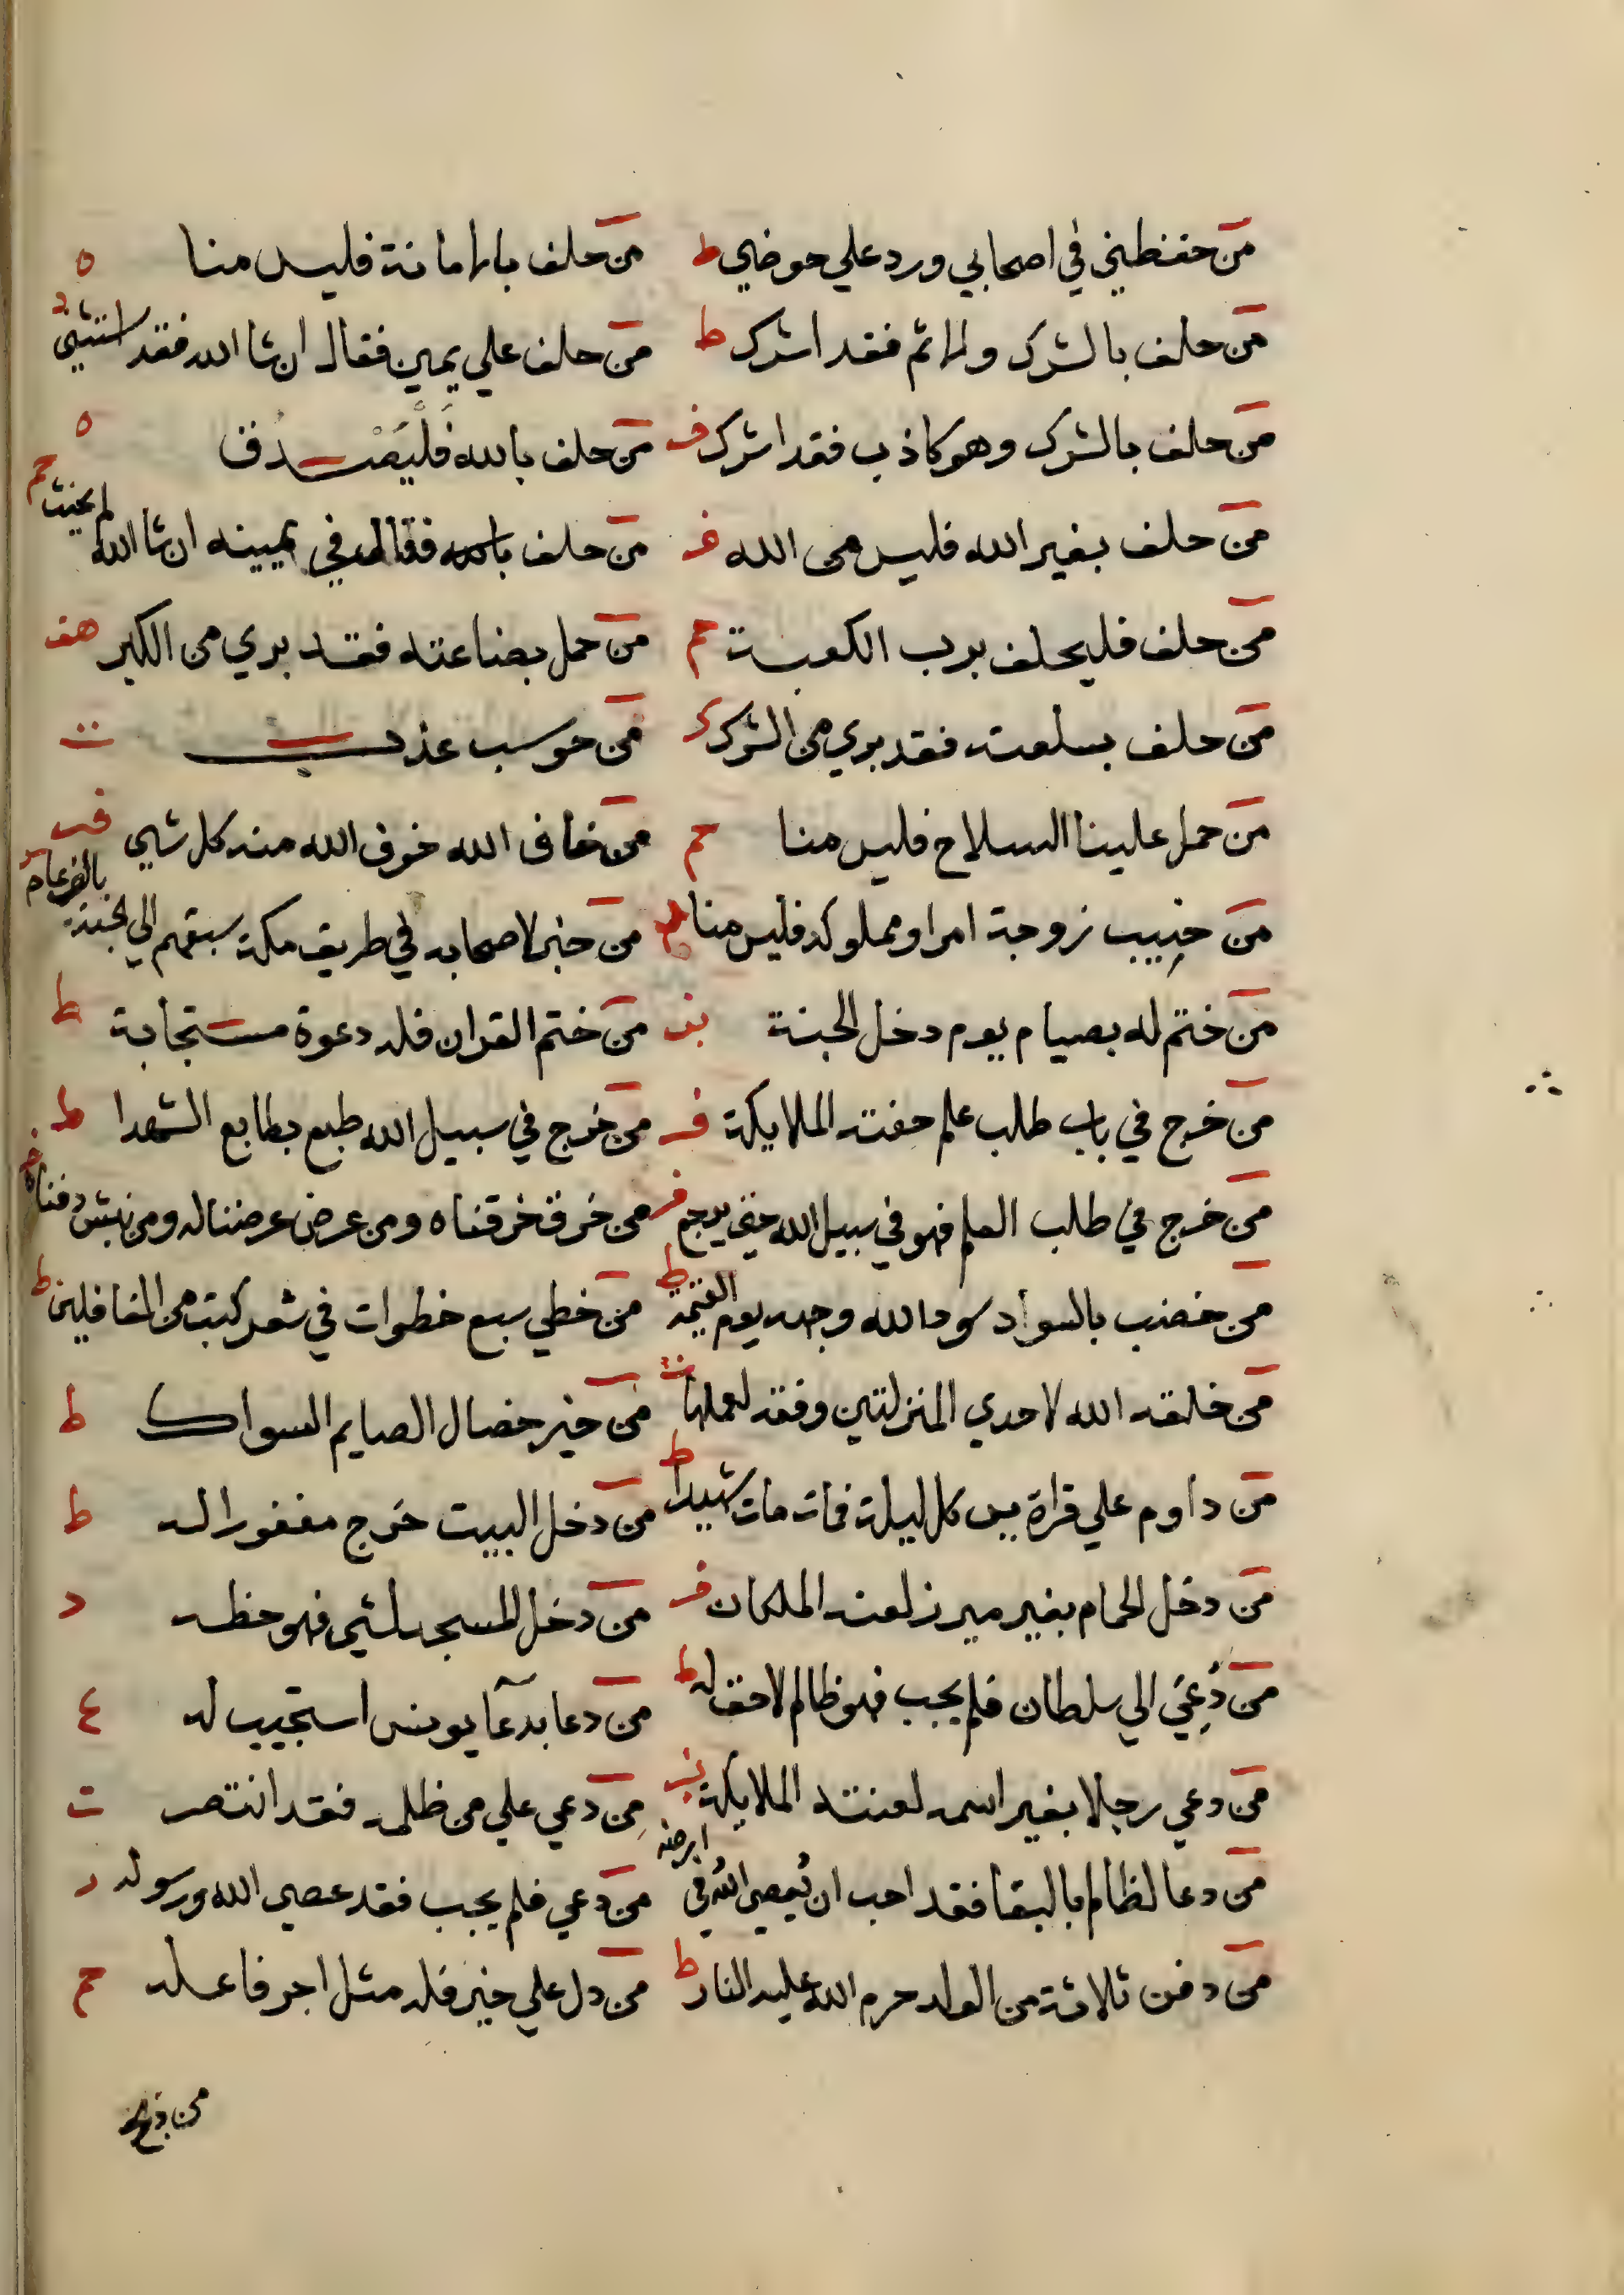 من حفظني في اصحابي ورد علي حوضي ط من حلف بالامانة فليس منا ه
من حلف بالشرك والاثم فقد اشرك ط من حلف علي يمين فقال ان شا الله فقد استثني د
من حلف بالشرك وهو كاذب فقد اشرك ف من حلف بالله فليصدق ه
من حلف بغير الله فليس من الله فر من حلف بالله فقال في يمينه ان شا الله لم يحنث حم
من حلف فليحلف برب الكعبة حم من حمل بضاعته فقد بري من الكبر هف
من حلف بسلعته فقد بري من الشرك ك من حوسب عذب ت
من حمل علينا السلاح فليس منا حم من خاف الله خوف الله منه كل شي فب
من خبب زوجة امرا ومملوكه فليس منا من خبر لاصحابه في طريق مكة سبقهم الي الجنة بالف عام
من ختم له بصيام يوم دخل الجنة بز من ختم القران فله دعوة مستجابة ط
من خرج في باب طلب علم حفته الملايكة فر من خرج في سبيل الله طبع بطابع الشهدا ط
من خرج في طلب العلم فهو في سبيل الله حتي يرجع فر من خرق خرقناه ومن عرض عرضنا له ومن نبش دفناه
من خضب بالسواد سود الله وجهه يوم القيمة ط من خطي سبع خطوات في شعر كتب من الغافلين ط
من خلقه الله لاحدي المنزلتين وفقه لعملها من خير خصال الصايم السواك ط
من داوم علي قراة يس كل ليلة فمات مات شهيدا ط من دخل البيت خرج مغفورا له ط
من دخل الحمام بغير ميزر لعنه الملكان فر من دخل المسجد لشي فهو حظه د
من دعي الي سلطان فلم يجب فهو ظالم لا حق له ط من دعا بدعا يونس استجيب له ع
من دعي رجلا بغير اسمه لعنته الملايكة من دعي علي من ظلمه فقد انتصر ت
من دعا لظالم بالبقا فقد احب ان يعصي الله في ارضه من دعي فلم يجب فقد عصي الله ورسوله د
من دفن ثلاثة من الولد حرم الله عليه النار ط من دل علي خير فله مثل اجر فاعله حم
من ذبح